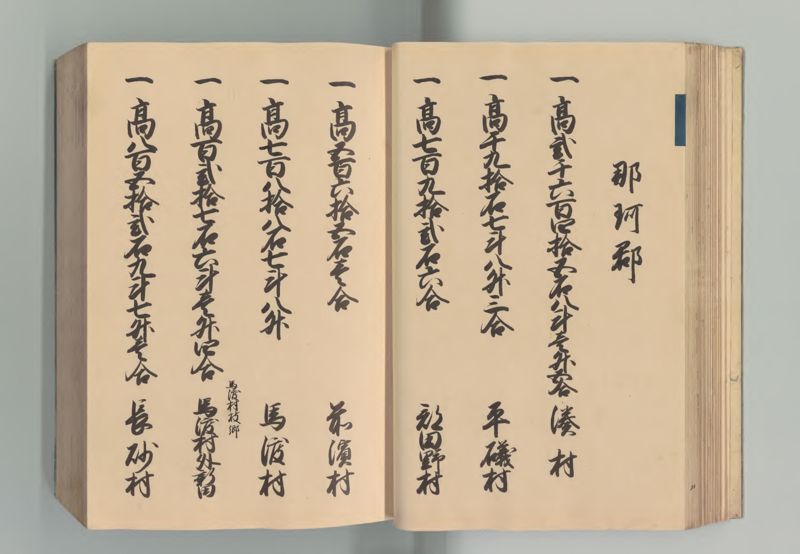 那珂郡
一高貳千六百四拾五石八斗壱升五合 湊村
一高千九拾石七斗八升三合 平磯村
一高七百九拾貳石六合 部田野村
一高五百六拾五石壱合 前濱村
一高七百八拾八石七斗八升 馬渡村
馬渡村枝郷
一高百貳拾七石六斗壱升四合 馬渡村外新田
一高八百五拾貳石九斗七升壱合 長砂村